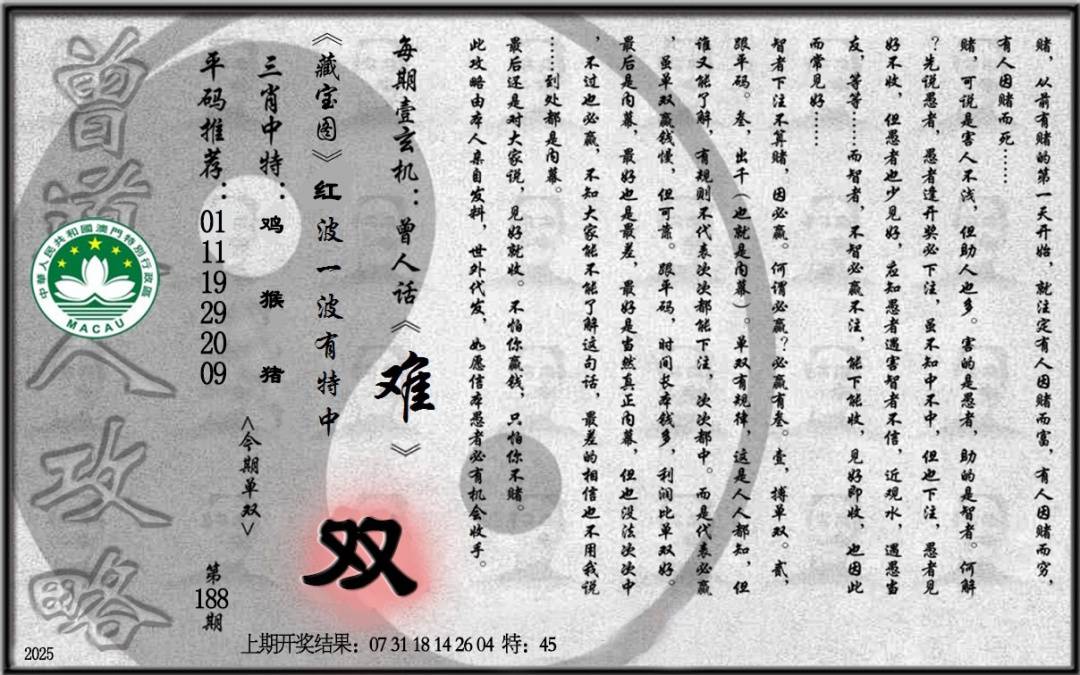 赌，从前有赌的第一天开始，就注定有人因赌而富，有人因赌而穷，
有人因赌而死……
赌，可说是害人不浅，但助人也多。害的是愚者，助的是智者。何解
？先说愚者，愚者逢开奖必下注，虽不知中不中，但也下注，愚者见
好不收，但愚者也少见好，应知愚者遇害智者不信，近观水，遇愚当
友，等等……而智者，不智必赢不注，能下能收，见好即收，也因此
而常见好……
智者下注不算赌，因必赢。何谓必赢？必赢有叁。壹，搏单双。贰，
跟平码。叁，出千（也就是内幕）。单双有规律，这是人人都知，但
谁又能了解，有规则不代表次次都能下注，次次都中。而是代表必赢
，虽单双赢钱慢，但可靠。跟平码，时间长本钱多，利润比单双好。
最后是内幕，最好也是最差，最好是当然真正内幕，但也没法次次中
，不过也必赢，不知大家能不能了解这句话，最差的相信也不用我说
……到处都是内幕。
最后还是对大家说，见好就收。不怕你赢钱，只怕你不赌。
此攻略由本人亲自发料，世外代发，如愿信本愚者必有机会收手。
每期壹玄机：曾人话《难》
《藏宝图》红波一波有特中
双
三肖中特：鸡 猴 猪
<今期单双>
平码推荐：01 11 19 29 20 09
第188期
曾道人攻略
中華人民共和國澳門特別行政區
MACAU
上期开奖结果：07 31 18 14 26 04 特：45
2025